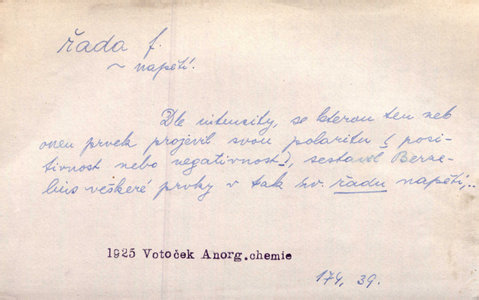 řada f.
~ napětí.
Dle intensity, se kterou ten neb
onen prvek projevil svou polaritu (posi-
tivnost nebo negativnost), sestavil Berze-
lius veškeré prvky v tak zv. řadu napětí,..
1925 Votoček Anorg.chemie
174, 39.